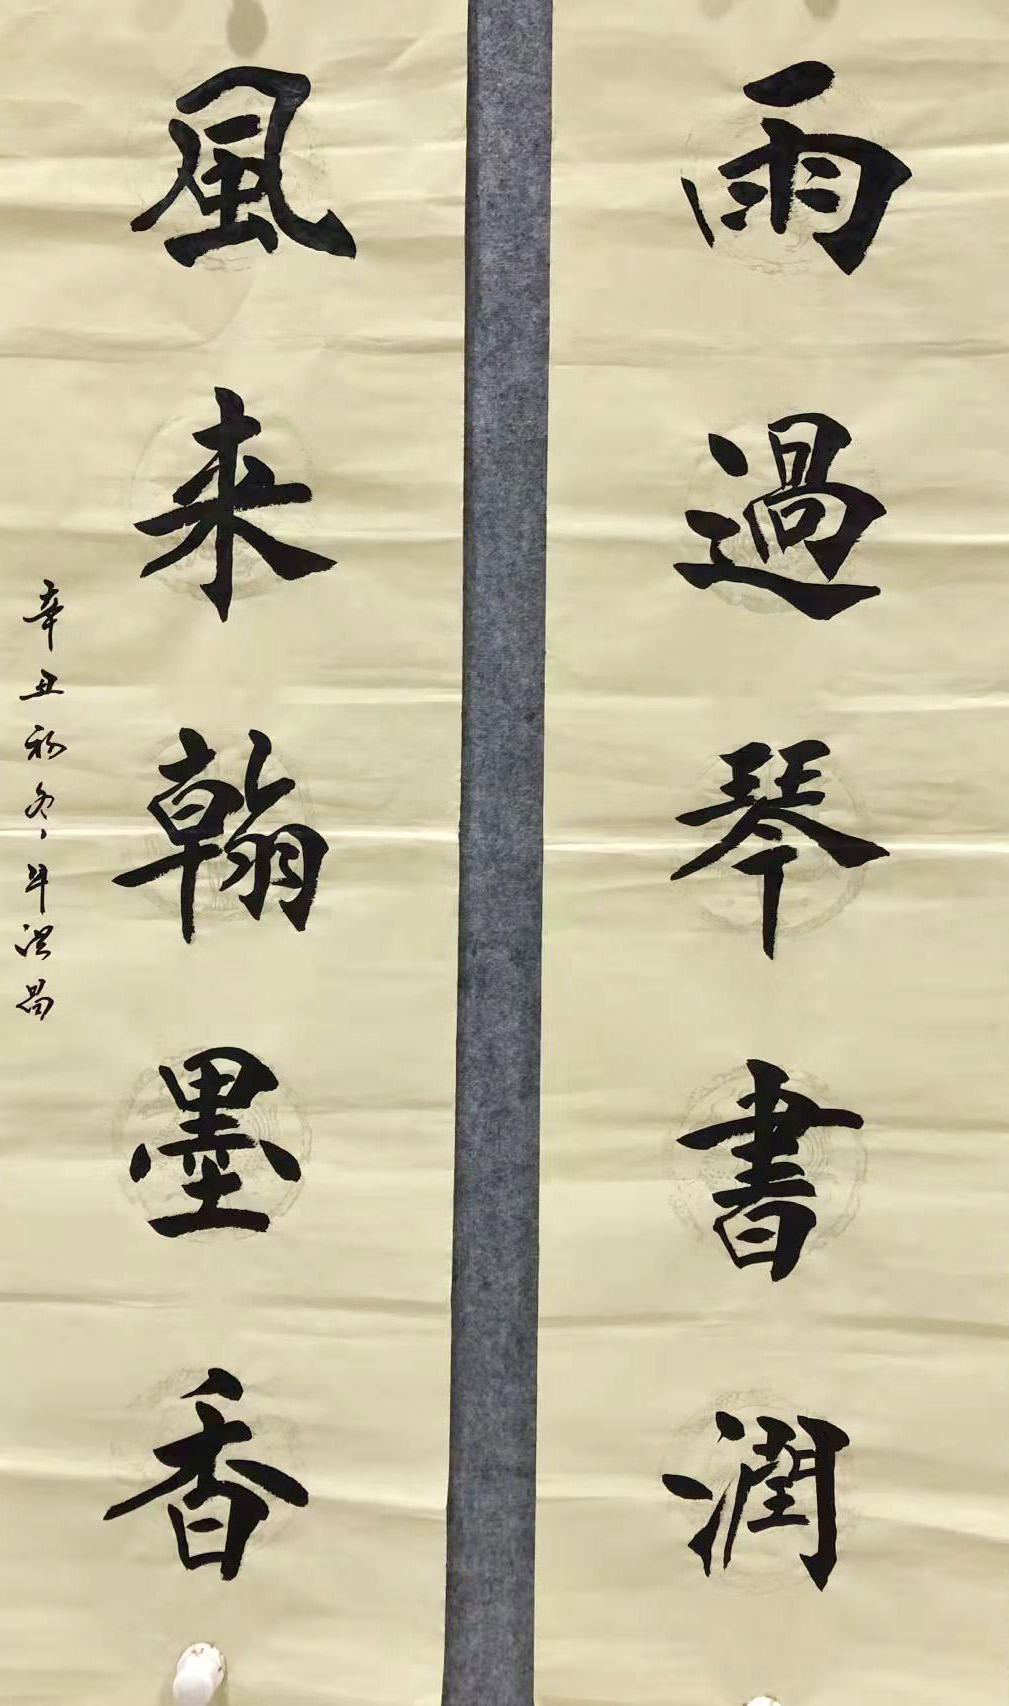 雨過琴書潤
風来翰墨香
辛丑初冬牟洪昌